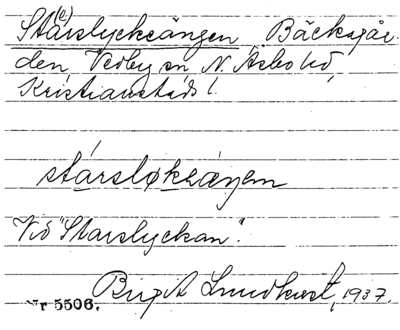 St(e)arslyckeängen, Bäcksgår-
den Vedby sn, N. Åsbo hd,
Kristianstads l.
stársløkæŋen
Vid "Starslyckan".
Birgit Lundkvist, 1937.
Nr 5506.